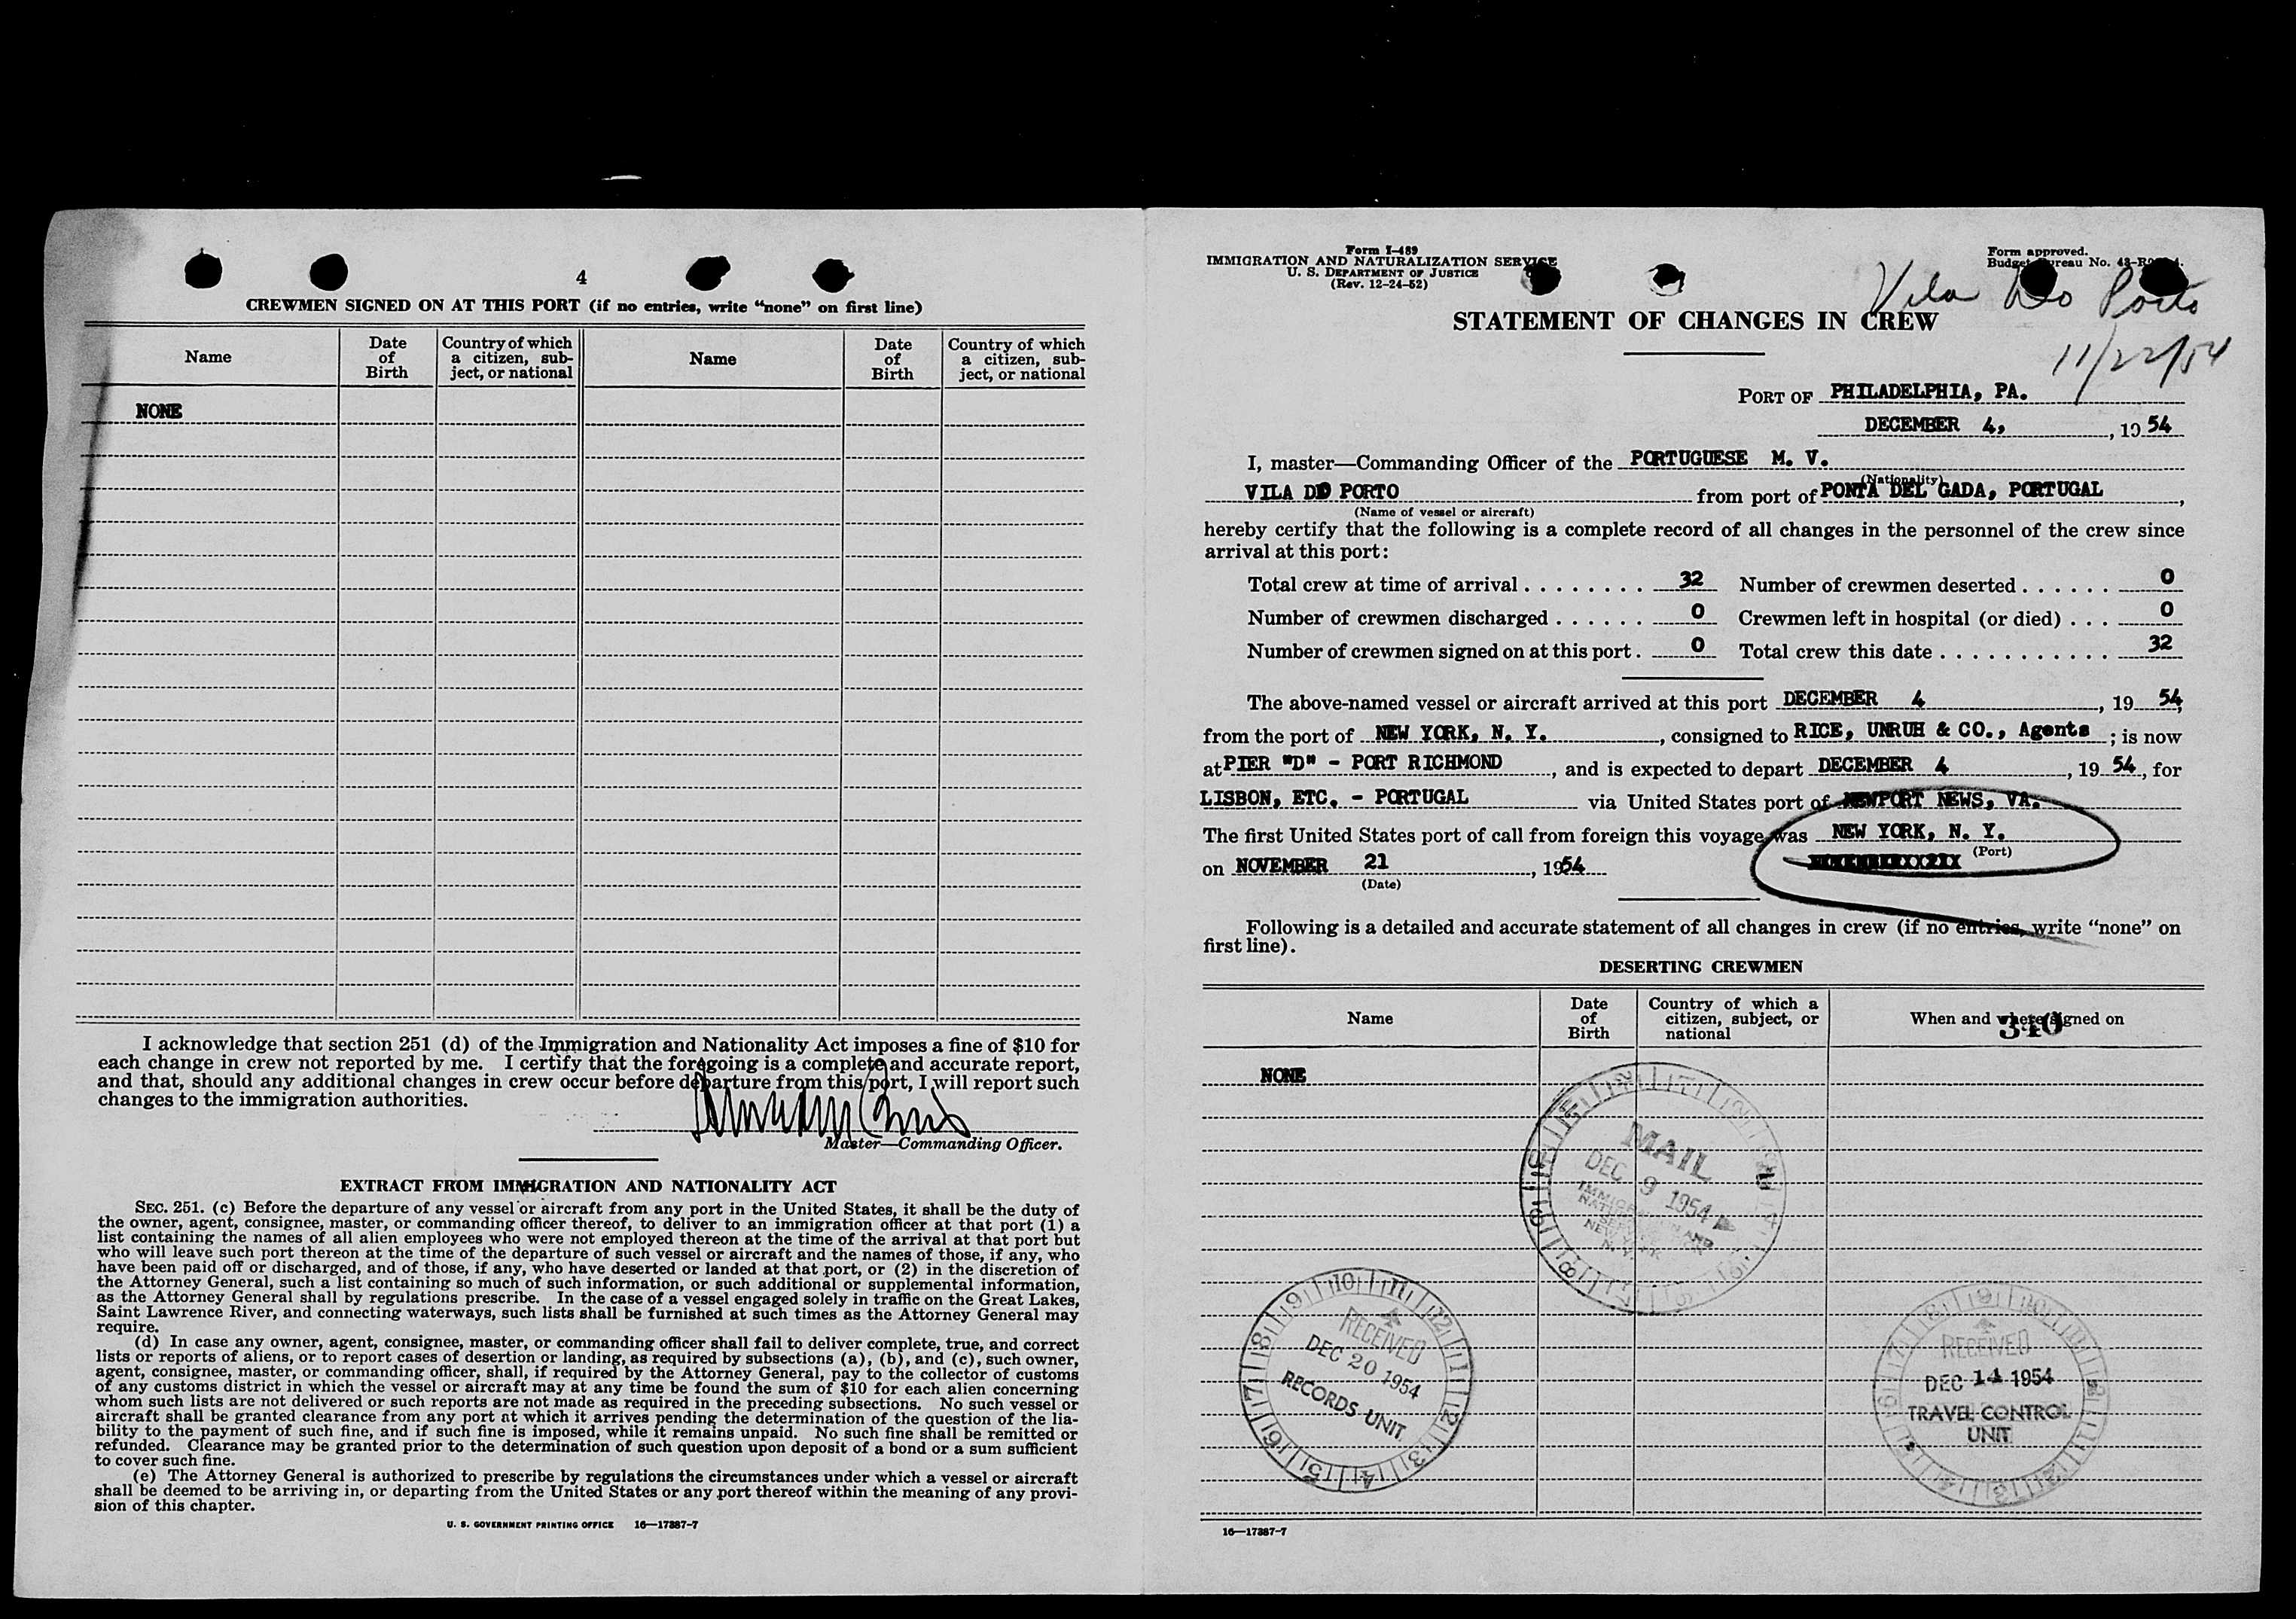 4
CREWMEN SIGNED ON AT THIS PORT (if no entries, write “none” on first line)
Name
Date of Birth
Country of which a citizen, sub-ject, or national
Name
Date of Birth
Country of which a citizen, sub-ject, or national
NONE
I acknowledge that section 251 (d) of the Immigration and Nationality Act imposes a fine of $10 for
each change in crew not reported by me. I certify that the foregoing is a complete and accurate report,
and that, should any additional changes in crew occur before departure from this port, I will report such
changes to the immigration authorities.
Master—Commanding Officer.
EXTRACT FROM IMMIGRATION AND NATIONALITY ACT
SEC. 251. (c) Before the departure of any vessel or aircraft from any port in the United States, it shall be the duty of
the owner, agent, consignee, master, or commanding officer thereof, to deliver to an immigration officer at that port (1) a
list containing the names of all alien employees who were not employed thereon at the time of the arrival at that port but
who will leave such port thereon at the time of the departure of such vessel or aircraft and the names of those, if any, who
have been paid off or discharged, and of those, if any, who have deserted or landed at that port, or (2) in the discretion of
the Attorney General, such a list containing so much of such information, or such additional or supplemental information,
as the Attorney General shall by regulations prescribe. In the case of a vessel engaged solely in traffic on the Great Lakes,
Saint Lawrence River, and connecting waterways, such lists shall be furnished at such times as the Attorney General may
require.
(d) In case any owner, agent, consignee, master, or commanding officer shall fail to deliver complete, true, and correct
lists or reports of aliens, or to report cases of desertion or landing, as required by subsections (a), (b), and (c), such owner,
agent, consignee, master, or commanding officer, shall, if required by the Attorney General, pay to the collector of customs
of any customs district in which the vessel or aircraft may at any time be found the sum of $10 for each alien concerning
whom such lists are not delivered or such reports are not made as required in the preceding subsections. No such vessel or
aircraft shall be granted clearance from any port at which it arrives pending the determination of the question of the lia-
bility to the payment of such fine, and if such fine is imposed, while it remains unpaid. No such fine shall be remitted or
refunded. Clearance may be granted prior to the determination of such question upon deposit of a bond or a sum sufficient
to cover such fine.
(e) The Attorney General is authorized to prescribe by regulations the circumstances under which a vessel or aircraft
shall be deemed to be arriving in, or departing from the United States or any port thereof within the meaning of any provi-
sion of this chapter.
U. S. GOVERNMENT PRINTING OFFICE 16—17387-7
Form I-489
IMMIGRATION AND NATURALIZATION SERVICE
U. S. DEPARTMENT OF JUSTICE
(Rev. 12-24-52)
Form approved.
Budget Bureau No.
Vila Do Porto
11/22/54
STATEMENT OF CHANGES IN CREW
PORT OF PHILADELPHIA, PA.
DECEMBER 4, , 19 54
I, master—Commanding Officer of the PORTUGUESE M. V.
(Nationality)
VILA DO PORTO from port of PONTA DEL GADA, PORTUGAL ,
(Name of vessel or aircraft)
hereby certify that the following is a complete record of all changes in the personnel of the crew since
arrival at this port:
Total crew at time of arrival . . . . . . . . 32 Number of crewmen deserted . . . . . . 0
Number of crewmen discharged . . . . . . 0 Crewmen left in hospital (or died) . . . 0
Number of crewmen signed on at this port . 0 Total crew this date . . . . . . . . . . . 32
The above-named vessel or aircraft arrived at this port DECEMBER 4 , 19 54,
from the port of NEW YORK, N. Y. , consigned to RICE, UNRUH & CO., Agents ; is now
at PIER "D" - PORT RICHMOND , and is expected to depart DECEMBER 4 , 19 54 , for
LISBON, ETC. - PORTUGAL via United States port of NEWPORT NEWS, VA.
The first United States port of call from foreign this voyage was NEW YORK, N. Y.
(Port)
on NOVEMBER 21 , 1954
(Date)
Following is a detailed and accurate statement of all changes in crew (if no entries, write “none” on
first line).
DESERTING CREWMEN
Name
Date of Birth
Country of which a citizen, subject, or national
When and where signed on
340
NONE
MAIL
DEC 9 1954
IMMIGRATION AND
NATURALIZATION
SERVICE
NEW YORK
N. Y.
RECEIVED
DEC 20 1954
RECORDS UNIT
RECEIVED
DEC 14 1954
TRAVEL CONTROL
UNIT
16—17387-7